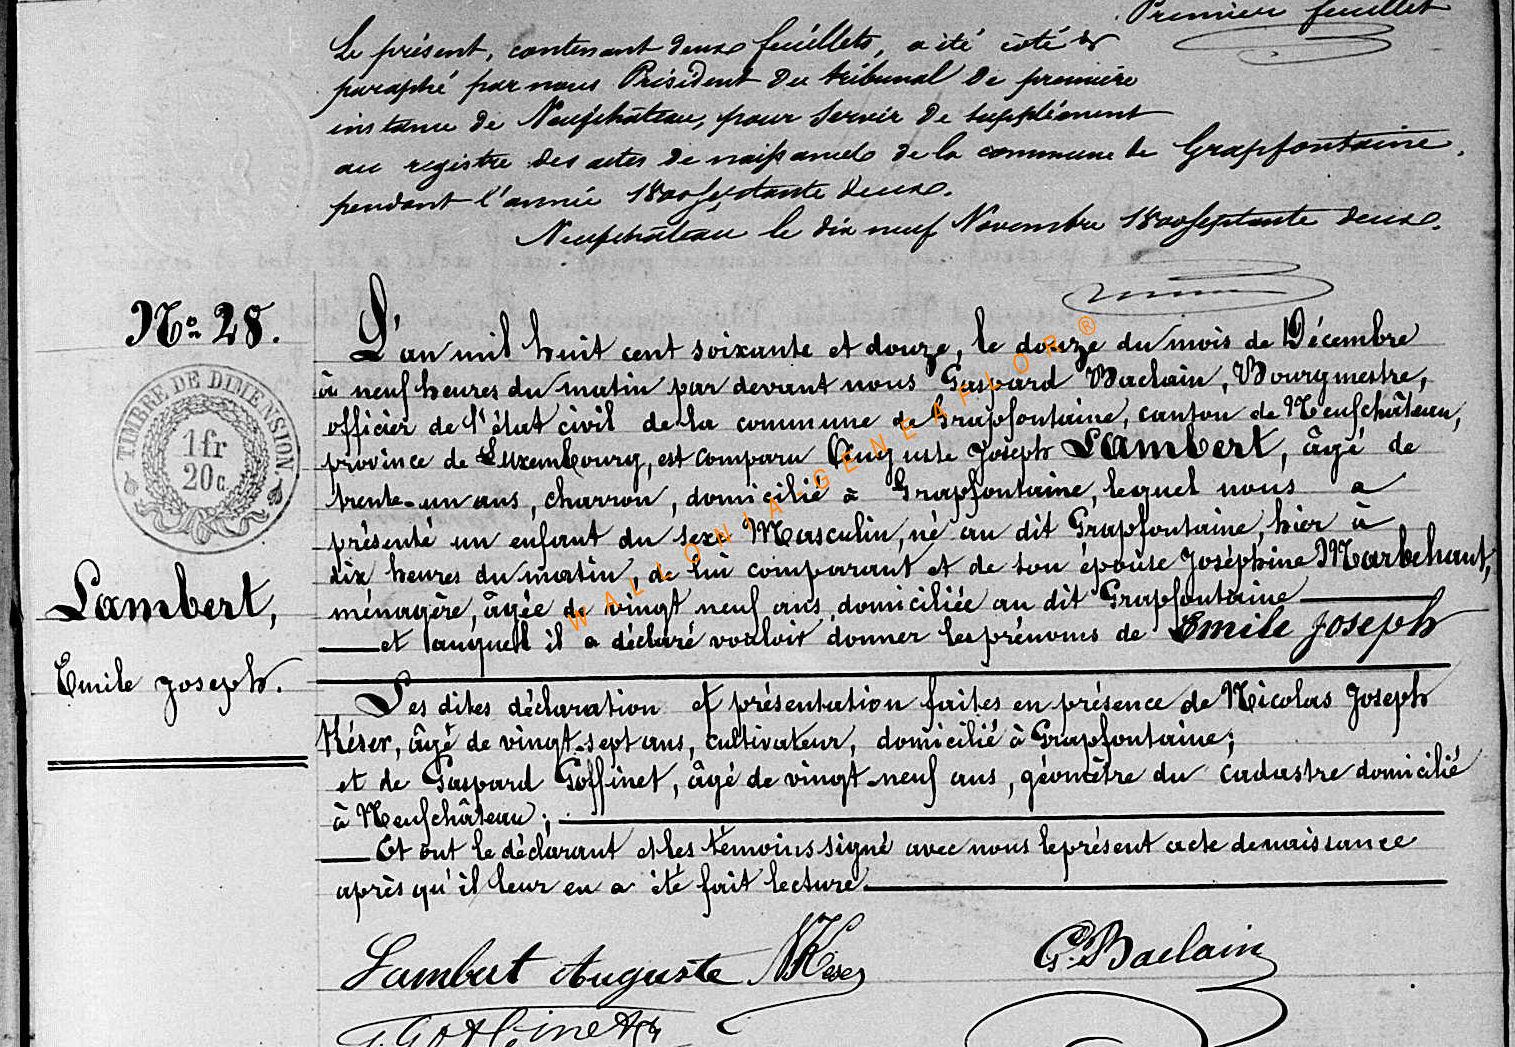 Premier feuillet
Le présent, contenant deux feuillets, a été coté &
paraphé par nous Président du tribunal de première
instance de Neufchâteau, pour servir de supplément
au registre des actes de naissances de la commune de Grapfontaine,
pendant l'année 1800 septante deux.
Neufchâteau le dix neuf Novembre 1800 septante deux.
No 28.
L'an mil huit cent soixante et douze, le douze du mois de Décembre
à neuf heures du matin par devant nous Gaspard Baclain, Bourgmestre,
officier de l'état civil de la commune de Grapfontaine, canton de Neufchâteau,
province de Luxembourg, est comparu Auguste Joseph Lambert, âgé de
trente-un ans, charron, domicilié à Grapfontaine, lequel nous a
présenté un enfant du sexe Masculin, né au dit Grapfontaine, hier à
dix heures du matin, de lui comparant et de son épouse Joséphine Marbehant,
ménagère, âgée de vingt neuf ans domiciliée au dit Grapfontaine
et auquel il a déclaré vouloir donner les prénoms de Emile Joseph
TIMBRE DE DIMENSION.
1 fr
20 c.
Lambert,
Emile Joseph.
Les dites déclaration et présentation faites en présence de Nicolas Joseph
Késer, âgé de vingt-sept ans, cultivateur, domicilié à Grapfontaine;
et de Gaspard Goffinet, âgé de vingt-neuf ans, géomètre du cadastre domicilié
à Neufchâteau;
Et ont le déclarant et les témoins signé avec nous le présent acte de naissance
après qu'il leur en a été fait lecture
Lambert Auguste NKéser G. Baclain
G. Goffinet
WALLONIA-GENEAFLOR ®